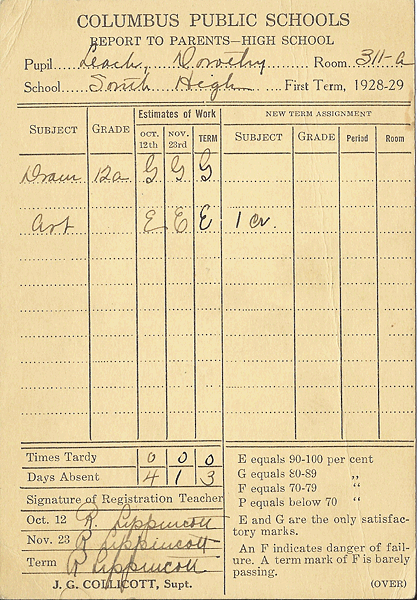 COLUMBUS PUBLIC SCHOOLS
REPORT TO PARENTS—HIGH SCHOOL
Pupil Leach, Dorothy Room 311-a
School South High First Term, 1928-29
SUBJECT GRADE Estimates of Work NEW TERM ASSIGNMENT
OCT. 12th NOV. 23rd TERM SUBJECT GRADE Period Room
Dram 12a G G G
Art E E E 1 cr.
Times Tardy 0 0 0
Days Absent 4 1 3
Signature of Registration Teacher
Oct. 12 R. Lippincott
Nov. 23 R Lippincott
Term R Lippincott
J. G. COLLICOTT, Supt.
E equals 90-100 per cent
G equals 80-89 „
F equals 70-79 “
P equals below 70 “
E and G are the only satisfac-
tory marks.
An F indicates danger of fail-
ure. A term mark of F is barely
passing.
(OVER)